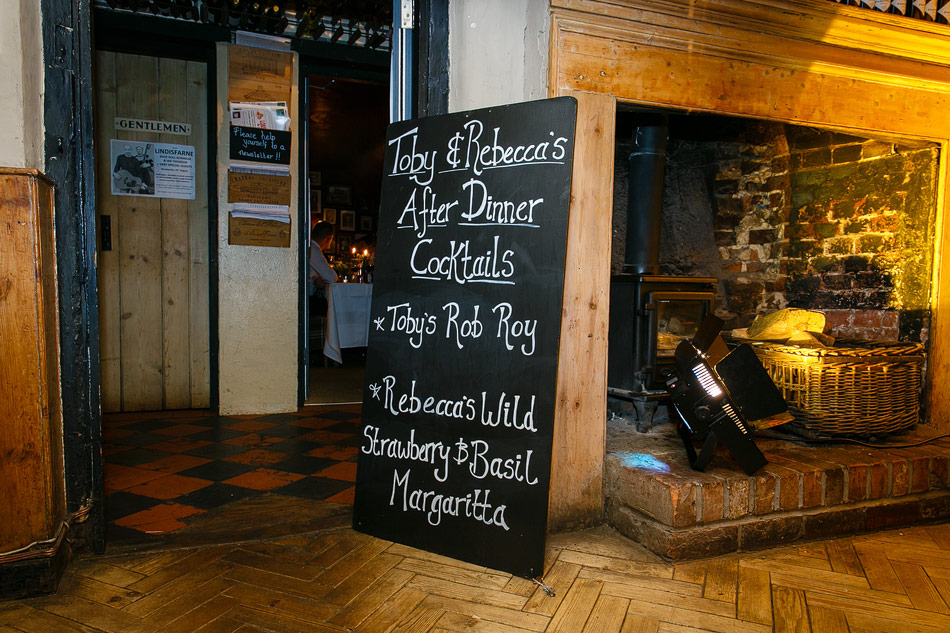 GENTLEMEN
LINDISFARNE
Please help
yourself to a
newsletter !!
Toby & Rebecca's
After Dinner
Cocktails
* Toby's Rob Roy
* Rebecca's Wild
Strawberry & Basil
Margaritta